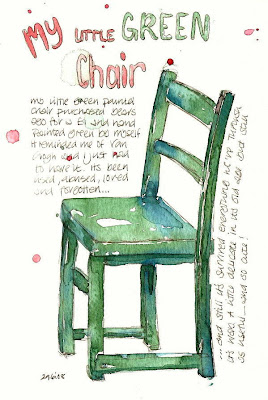 MY LITTLE GREEN
Chair
little green painted
chair purchased years
ago for and hand
painted green be myself
it reminded me of Van
and I just had
to have it. its been
used, abused, loved
and forgotten...
...and still its survived everywhere we've
its were a little delicate in its old age but still
as useful... and so cute!